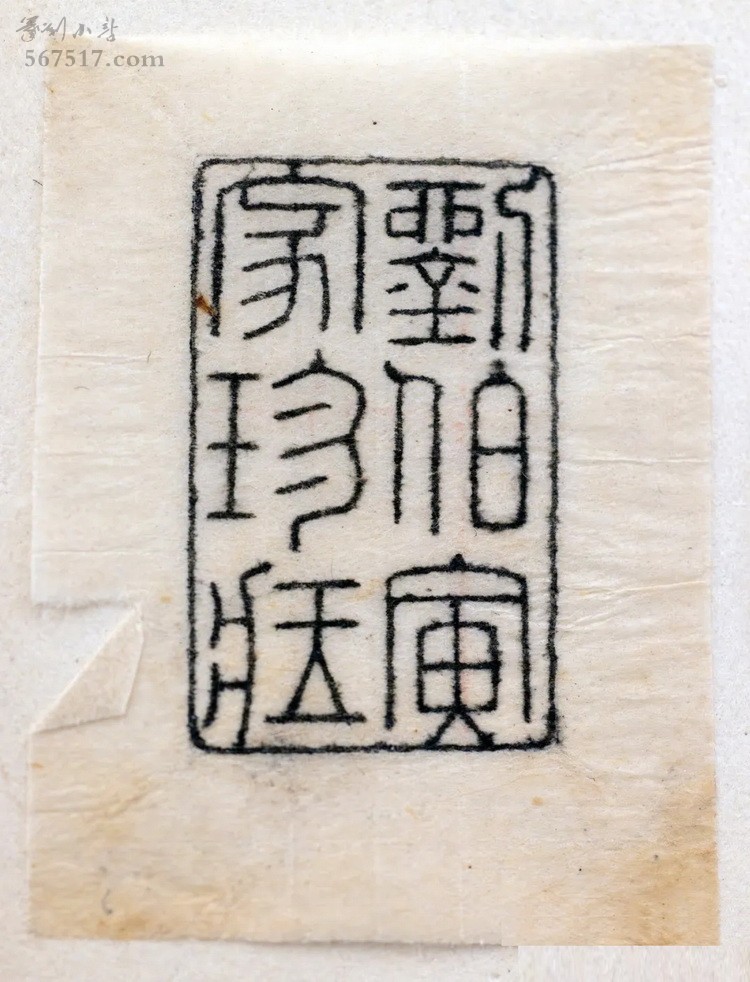 篆刻小站
567517.com
劉伯寅
家珍藏